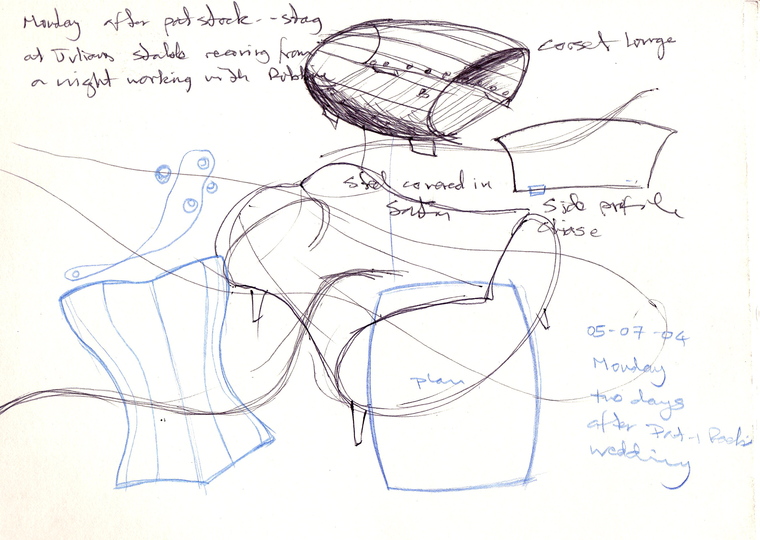 Monday after patstock - - stag
at Julians stable recoving from
a night working with
corset lounge
steel covered in
Satin
side profile
chiase
plan
05-07-04
Monday
two days
after Pat-n
wedding